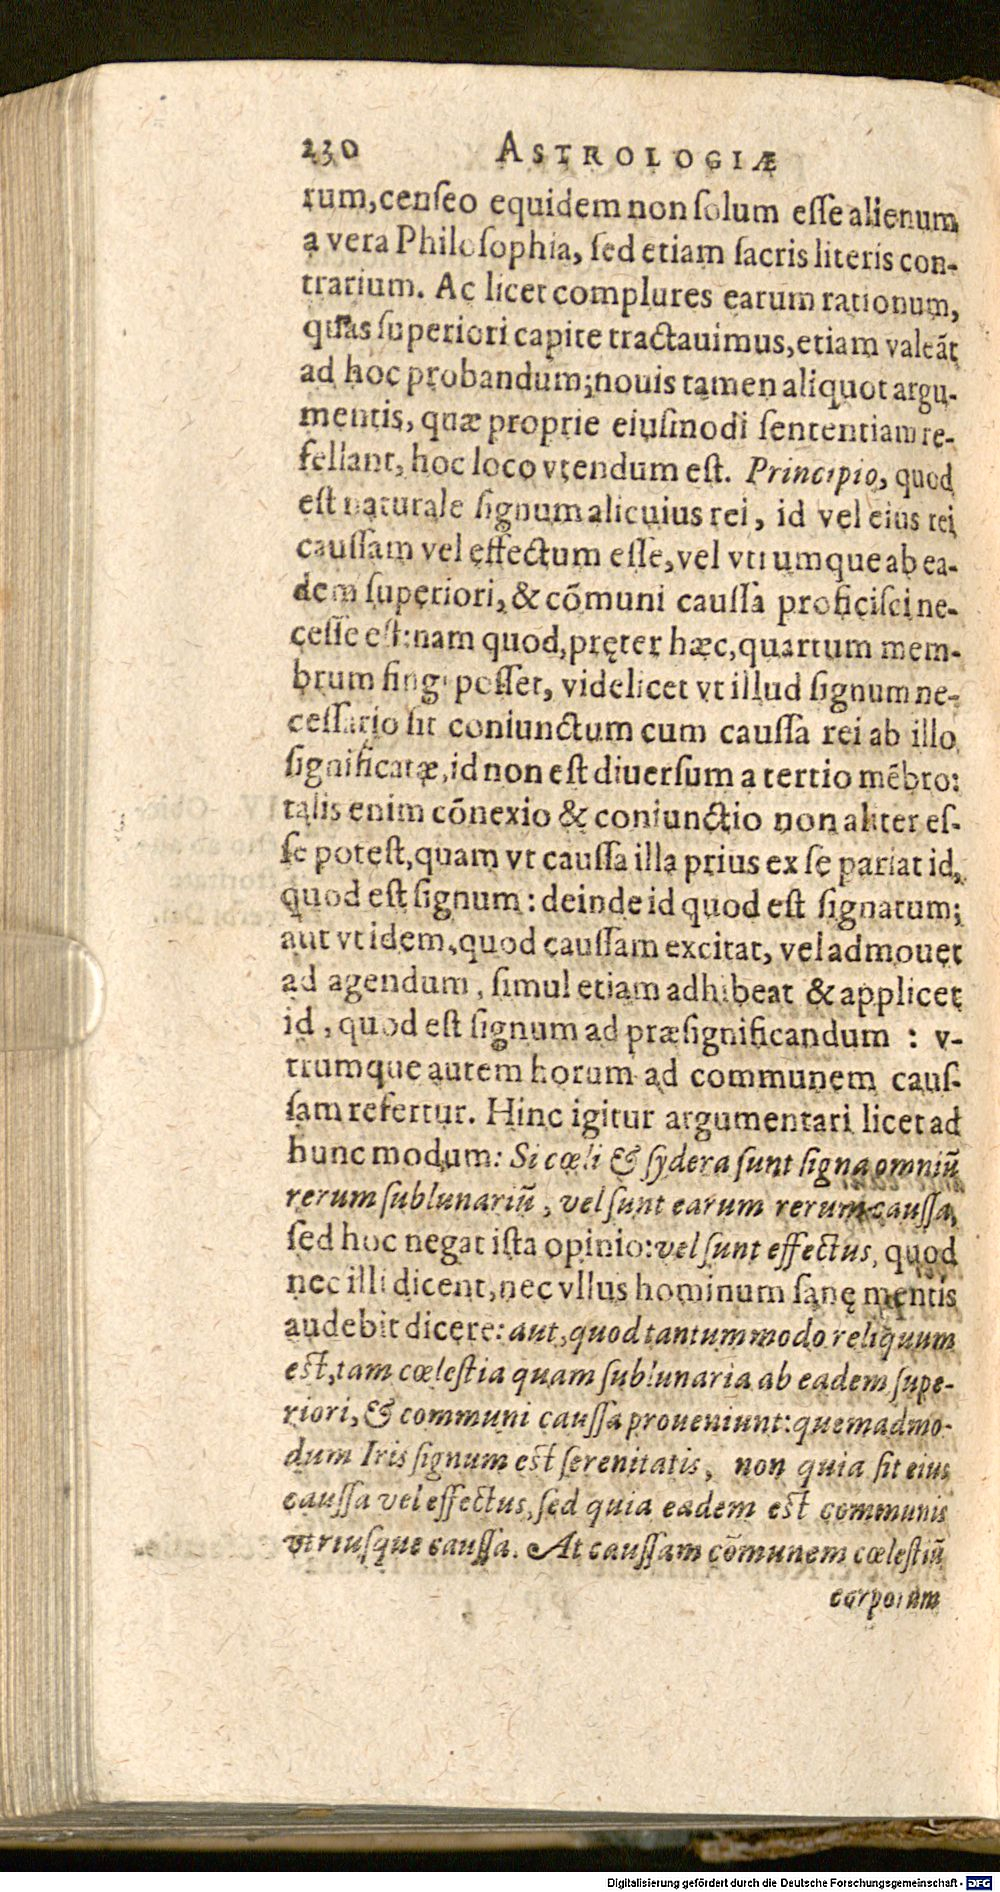 230 ASTROLOGIÆ
rum, censeo equidem non ſolum eſſe alienum
a vera Philoſophia, ſed etiam ſacris literis con-
trarium. Ac licet complures earum rationum,
quas ſuperiori capite tractauimus, etiam valeāt
ad hoc probandum; nouis tamen aliquot argu-
mentis, quæ proprie eiuſmodi ſententiam re-
fellant, hoc loco vtendum eſt. Principio, quod
eſt naturale ſignum alicuius rei, id vel eius rei
cauſſam vel effectum eſſe, vel vtrumque ab ea-
dem ſuperiori, & cōmuni cauſſa proficiſci ne-
ceſſe eſt: nam quod, pręter hæc, quartum mem-
brum fingi poſſet, videlicet vt illud ſignum ne-
ceſſario ſit coniunctum cum cauſſa rei ab illo
ſignificatæ, id non eſt diuerſum a tertio mēbro:
talis enim cōnexio & coniunctio non aliter eſ-
ſe poteſt, quam vt cauſſa illa prius ex ſe pariat id,
quod eſt ſignum: deinde id quod eſt ſignatum;
aut vt idem, quod cauſſam excitat, vel admouet
ad agendum, ſimul etiam adhibeat & applicet
id, quod eſt ſignum ad præſignificandum : v-
trumque autem horum ad communem cauſ-
ſam refertur. Hinc igitur argumentari licet ad
hunc modum: Si cœli & ſydera ſunt ſigna omniū
rerum ſublunariū, vel ſunt earum rerum cauſſa,
ſed hoc negat iſta opinio: vel ſunt effectus, quod
nec illi dicent, nec vllus hominum ſanę mentis
audebit dicere: aut, quod tantummodo reliquum
eſt, tam cœleſtia quam ſublunaria ab eadem ſupe-
riori, & communi cauſſa proueniunt: quemadmo-
dum Iris ſignum eſt ſerenitatis, non quia ſit eius
cauſſa vel effectus, ſed quia eadem eſt communis
vtriuſque cauſſa. At cauſſam cōmunem cœleſtiū
corporum
Digitalisierung gefördert durch die Deutsche Forschungsgemeinschaft - DFG